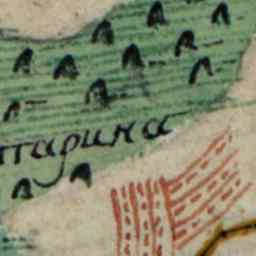 тарина